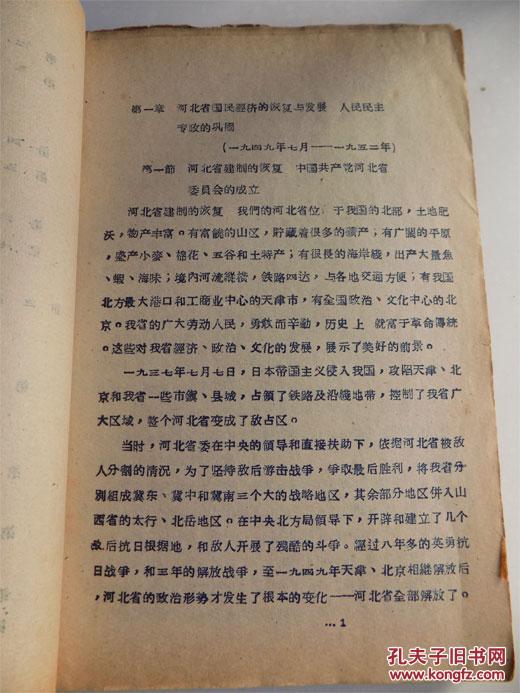 第一章 河北省国民經济的恢复与发展 人民民主
专政的巩固
(一九四九年七月——一九五二年)
第一節 河北省建制的恢复 中国共产党河北省
委員会的成立
河北省建制的恢复 我們的河北省位于我国的北部,土地肥
沃,物产丰富。有富饒的山区,貯藏着很多的礦产;有广闊的平原,
盛产小麥、棉花、五谷和土特产;有很長的海岸綫,出产大量魚
、蝦、海味;境内河流縱橫,铁路四达,与各地交通方便;有我国
北方最大港口和工商业中心的天津市,有全国政治、文化中心的北
京。我省的广大劳动人民,勇敢而辛勤,历史上 就富于革命傳統
。这些对我省經济、政治、文化的发展,展示了美好的前景。
一九三七年七月七日,日本帝国主义侵入我国,攻陷天津、北
京和我省一些市鎮、县城,占領了铁路及沿綫地带,控制了我省广
大区域,整个河北省变成了敌占区。
当时,河北省委在中央的領导和直接扶助下,依据河北省被敌
人分割的情况,为了坚持敌后游击战争,争取最后胜利,将我省分
别組成冀东、冀中和冀南三个大的战略地区,其余部分地区併入山
西省的太行、北岳地区。在中央北方局領导下,开辟和建立了几个
敌后抗日根据地,和敌人开展了残酷的斗争。經过八年多的英勇抗
日战争,和三年的解放战争,至一九四九年天津、北京相継解放后
,河北省的政治形势才发生了根本的变化——河北省全部解放了。
…1
孔夫子旧书网
kongfz.com